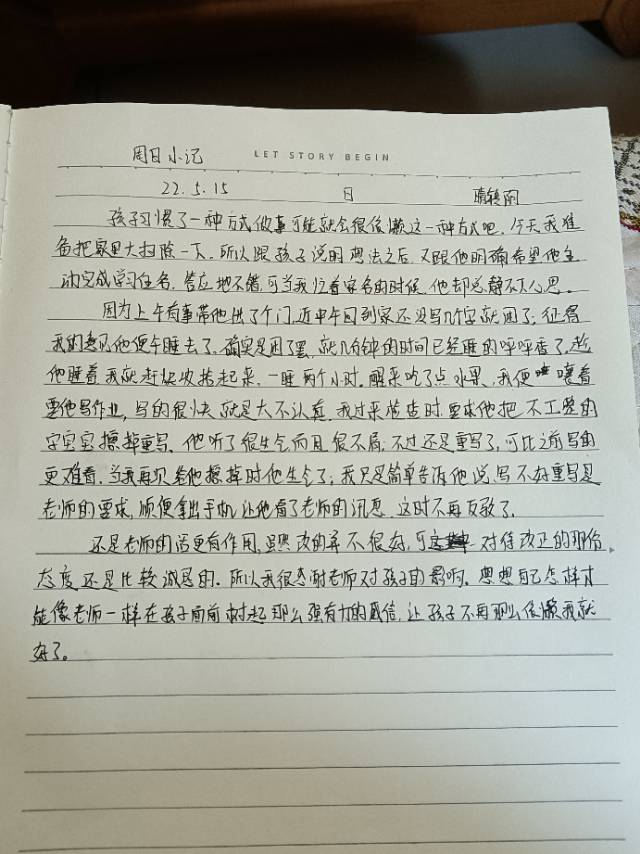 周日小记
LET STORY BEGIN
22.5.15 日 晴转雨
孩子习惯了一种方式做事可能就会很依赖这一种方式吧，今天我准
备把家里大扫除一下，所以跟孩子说明想法之后，又跟他明确希望他主
动完成学习任务，答应地不错，可当我忙着家务的时候，他却总静不下心思。
因为上午有事带他出了个门，近中午回到家还没写几个字就困了；征得
我的意见他便午睡去了，确实是困了罢，就几分钟的时间已经睡的呼呼香了，趁
他睡着我就赶快收拾起来，一睡两个小时，醒来吃了点水果，我便嚷着
要他写作业，写的很快就是太不认真，我过来检查时，要求他把不工整的
字宝宝擦掉重写，他听了很生气而且很不屑，不过还是重写了，可比之前写的
更难看，当我再次给他擦掉时他生气了；我只是简单告诉他说，写不好重写是
老师的要求，顺便拿出手机让他看了老师的讯息，这时不再反驳了。
还是老师的话更有作用，虽然改的并不很好，可对待改正的那份
态度还是比较诚恳的，所以我很感谢老师对孩子的影响，想想自己怎样才
能像老师一样在孩子面前树起那么强有力的威信，让孩子不再那么依赖我就
好了。